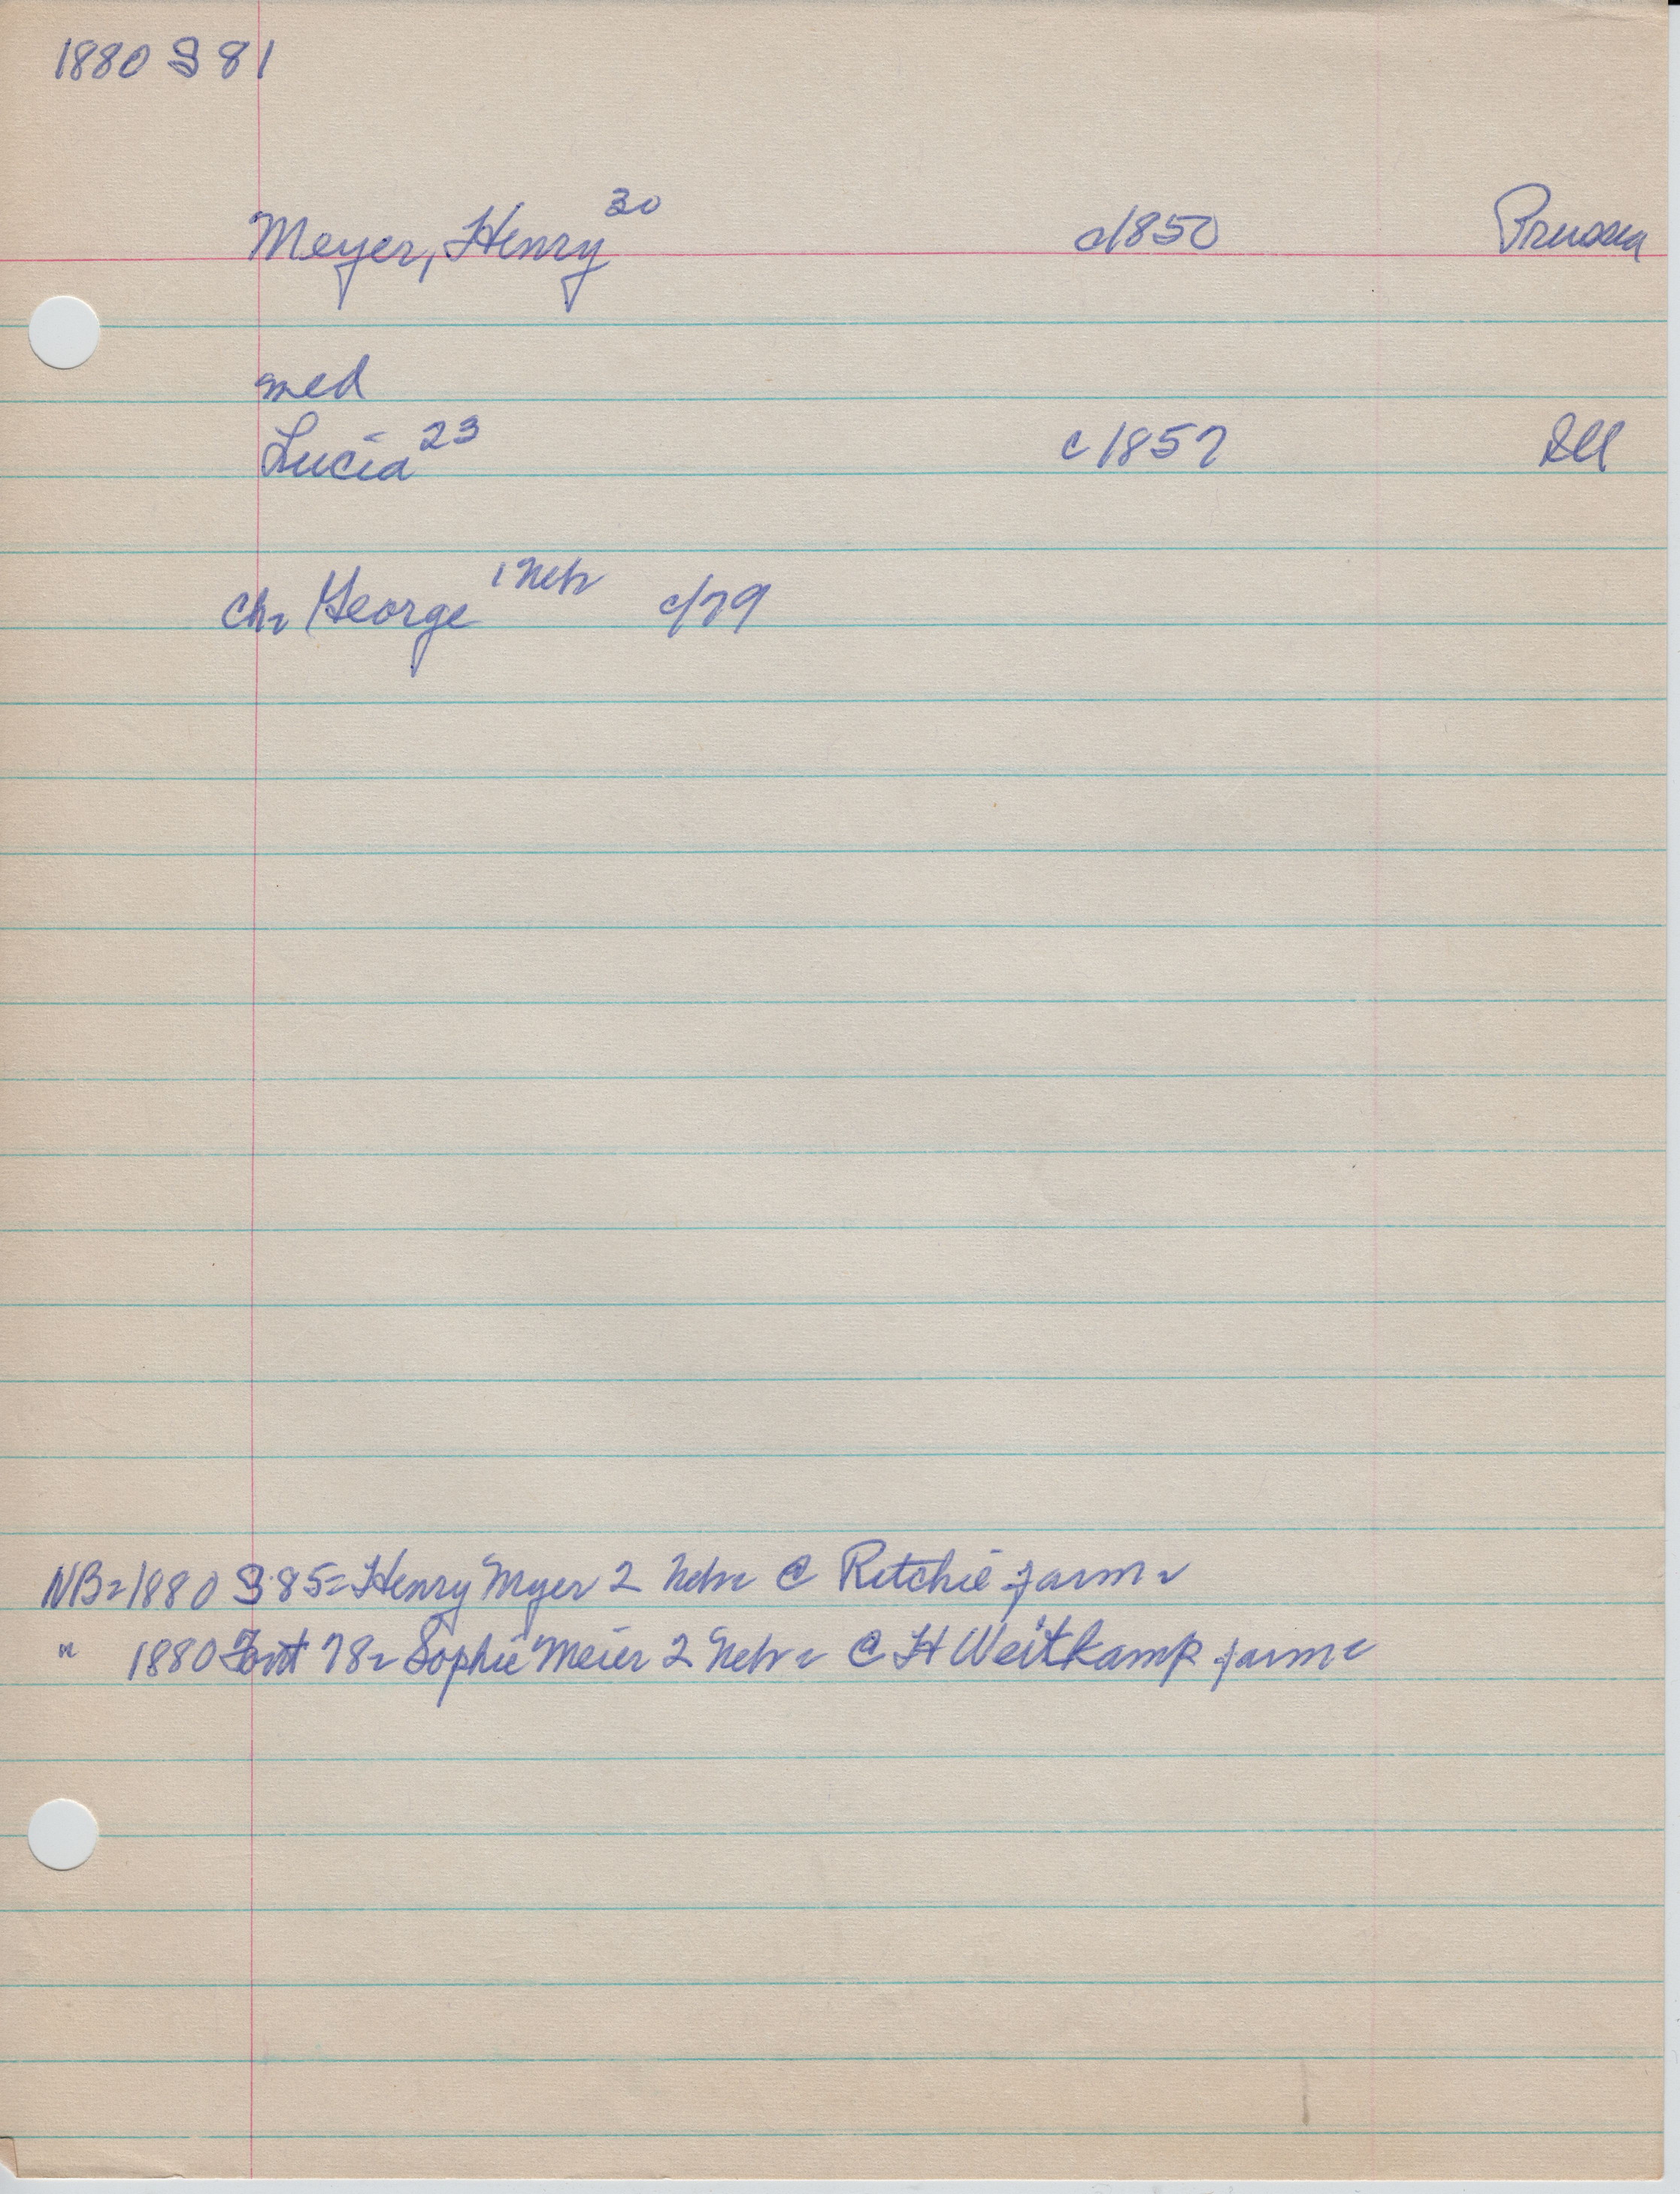 1880 S 81
Meyer, Henry 30 c/850 Prussia
med
Lucia 23 c 1857 Ill
ch- George 1 Neb c/79
NB-1880 S 85- Henry Myer 2 Neb- @ Ritchie farm-
" 1880 Font 78- Sophie Meier 2 Neb- @ H Weitkamp farm-